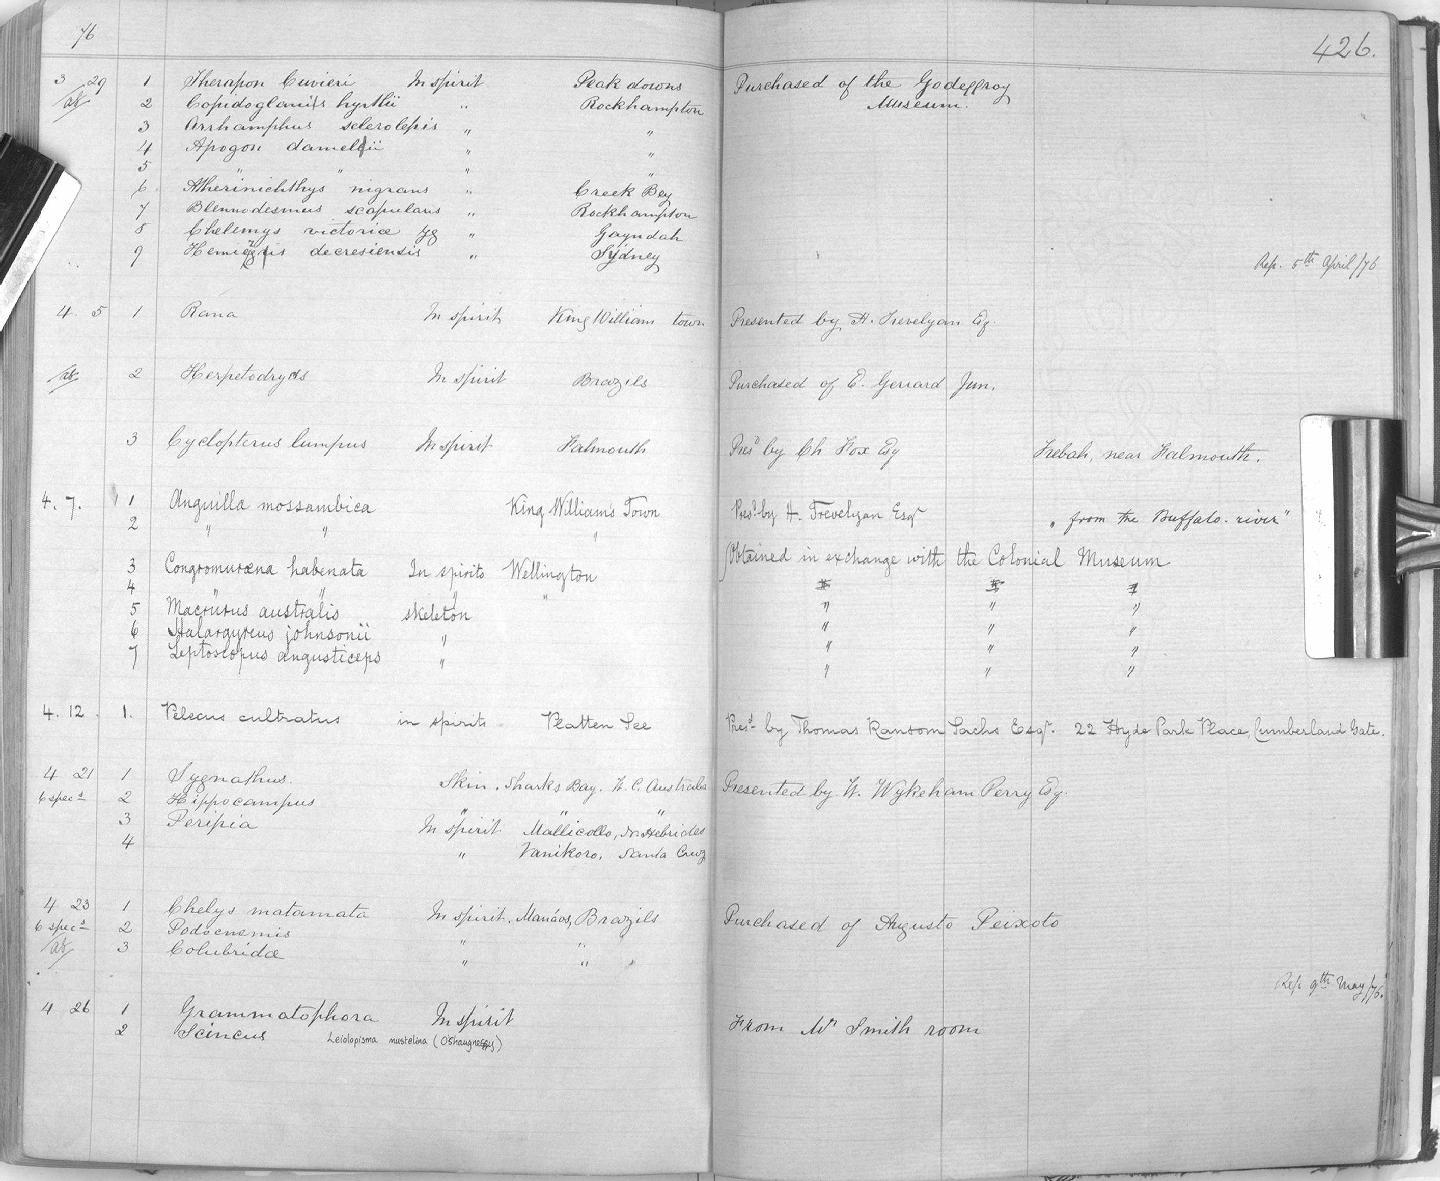 76
426.
3 29 1 Therapon Cuvieri In spirit Peak downs Purchased of the Godeffroy
2 Copidoglanis hyrtlii " Rockhampton Museum.
3 Arrhamphus sclerolepis " "
4 Apogon damelii " "
5 " " " "
6 Atherinichthys nigrans " Creek Bey
7 Blennodesmus scapularis " Rockhampton
8 Chelemys victoriæ yg " Gayndah
9 decresiensis " Sydney
Rep. 5th April/76
4. 5 1 Rana In spirit King William town Presented by H. Trevelyan Esq.
2 Herpetodryas In spirit Brazils Purchased of E. Gerrard Jun.
3 Cyclopterus lumpus In spirit Falmouth Presd by Ch Fox Esq Trebah, near Falmouth.
4. 7. 1 Anguilla mossambica King William's Town Presd by H. Trevelyan Esqr " from the Buffalo-river"
2 " " "
3 Congromuræna habenata In spirits Wellington Obtained in exchange with the Colonial Museum
4 " " " " " " "
5 Macrurus australis skeleton " " "
6 Halargyreus johnsonii " " " "
7 Leptoscopus angusticeps " " " "
4. 12. 1. Pelecus cultratus in spirits Platten See Presd by Thomas Ransom Sachs Esqr. 22 Hyde Park Place, Cumberland Gate.
4 21 1 Sygnathus. Skin. Sharks Bay. W. C. Australia Presented by W. Wykeham Perry Esq.
6 specs 2 Hippocampus " " "
3 Peripia In spirit Mallicollo, N. Hebrides
4 " Vanikoro, Santa Cruz
4 23 1 Chelys matamata In spirit. Manáos, Brazils Purchased of Augusto Peixoto
6 specs 2 Podocnemis " " "
3 Colubridæ " " "
Rep. 9th May/76.
4 26 1 Grammatophora In spirit From Mr Smith room
2 Scincus Leiolopisma mustelina (O'Shaugnessy)